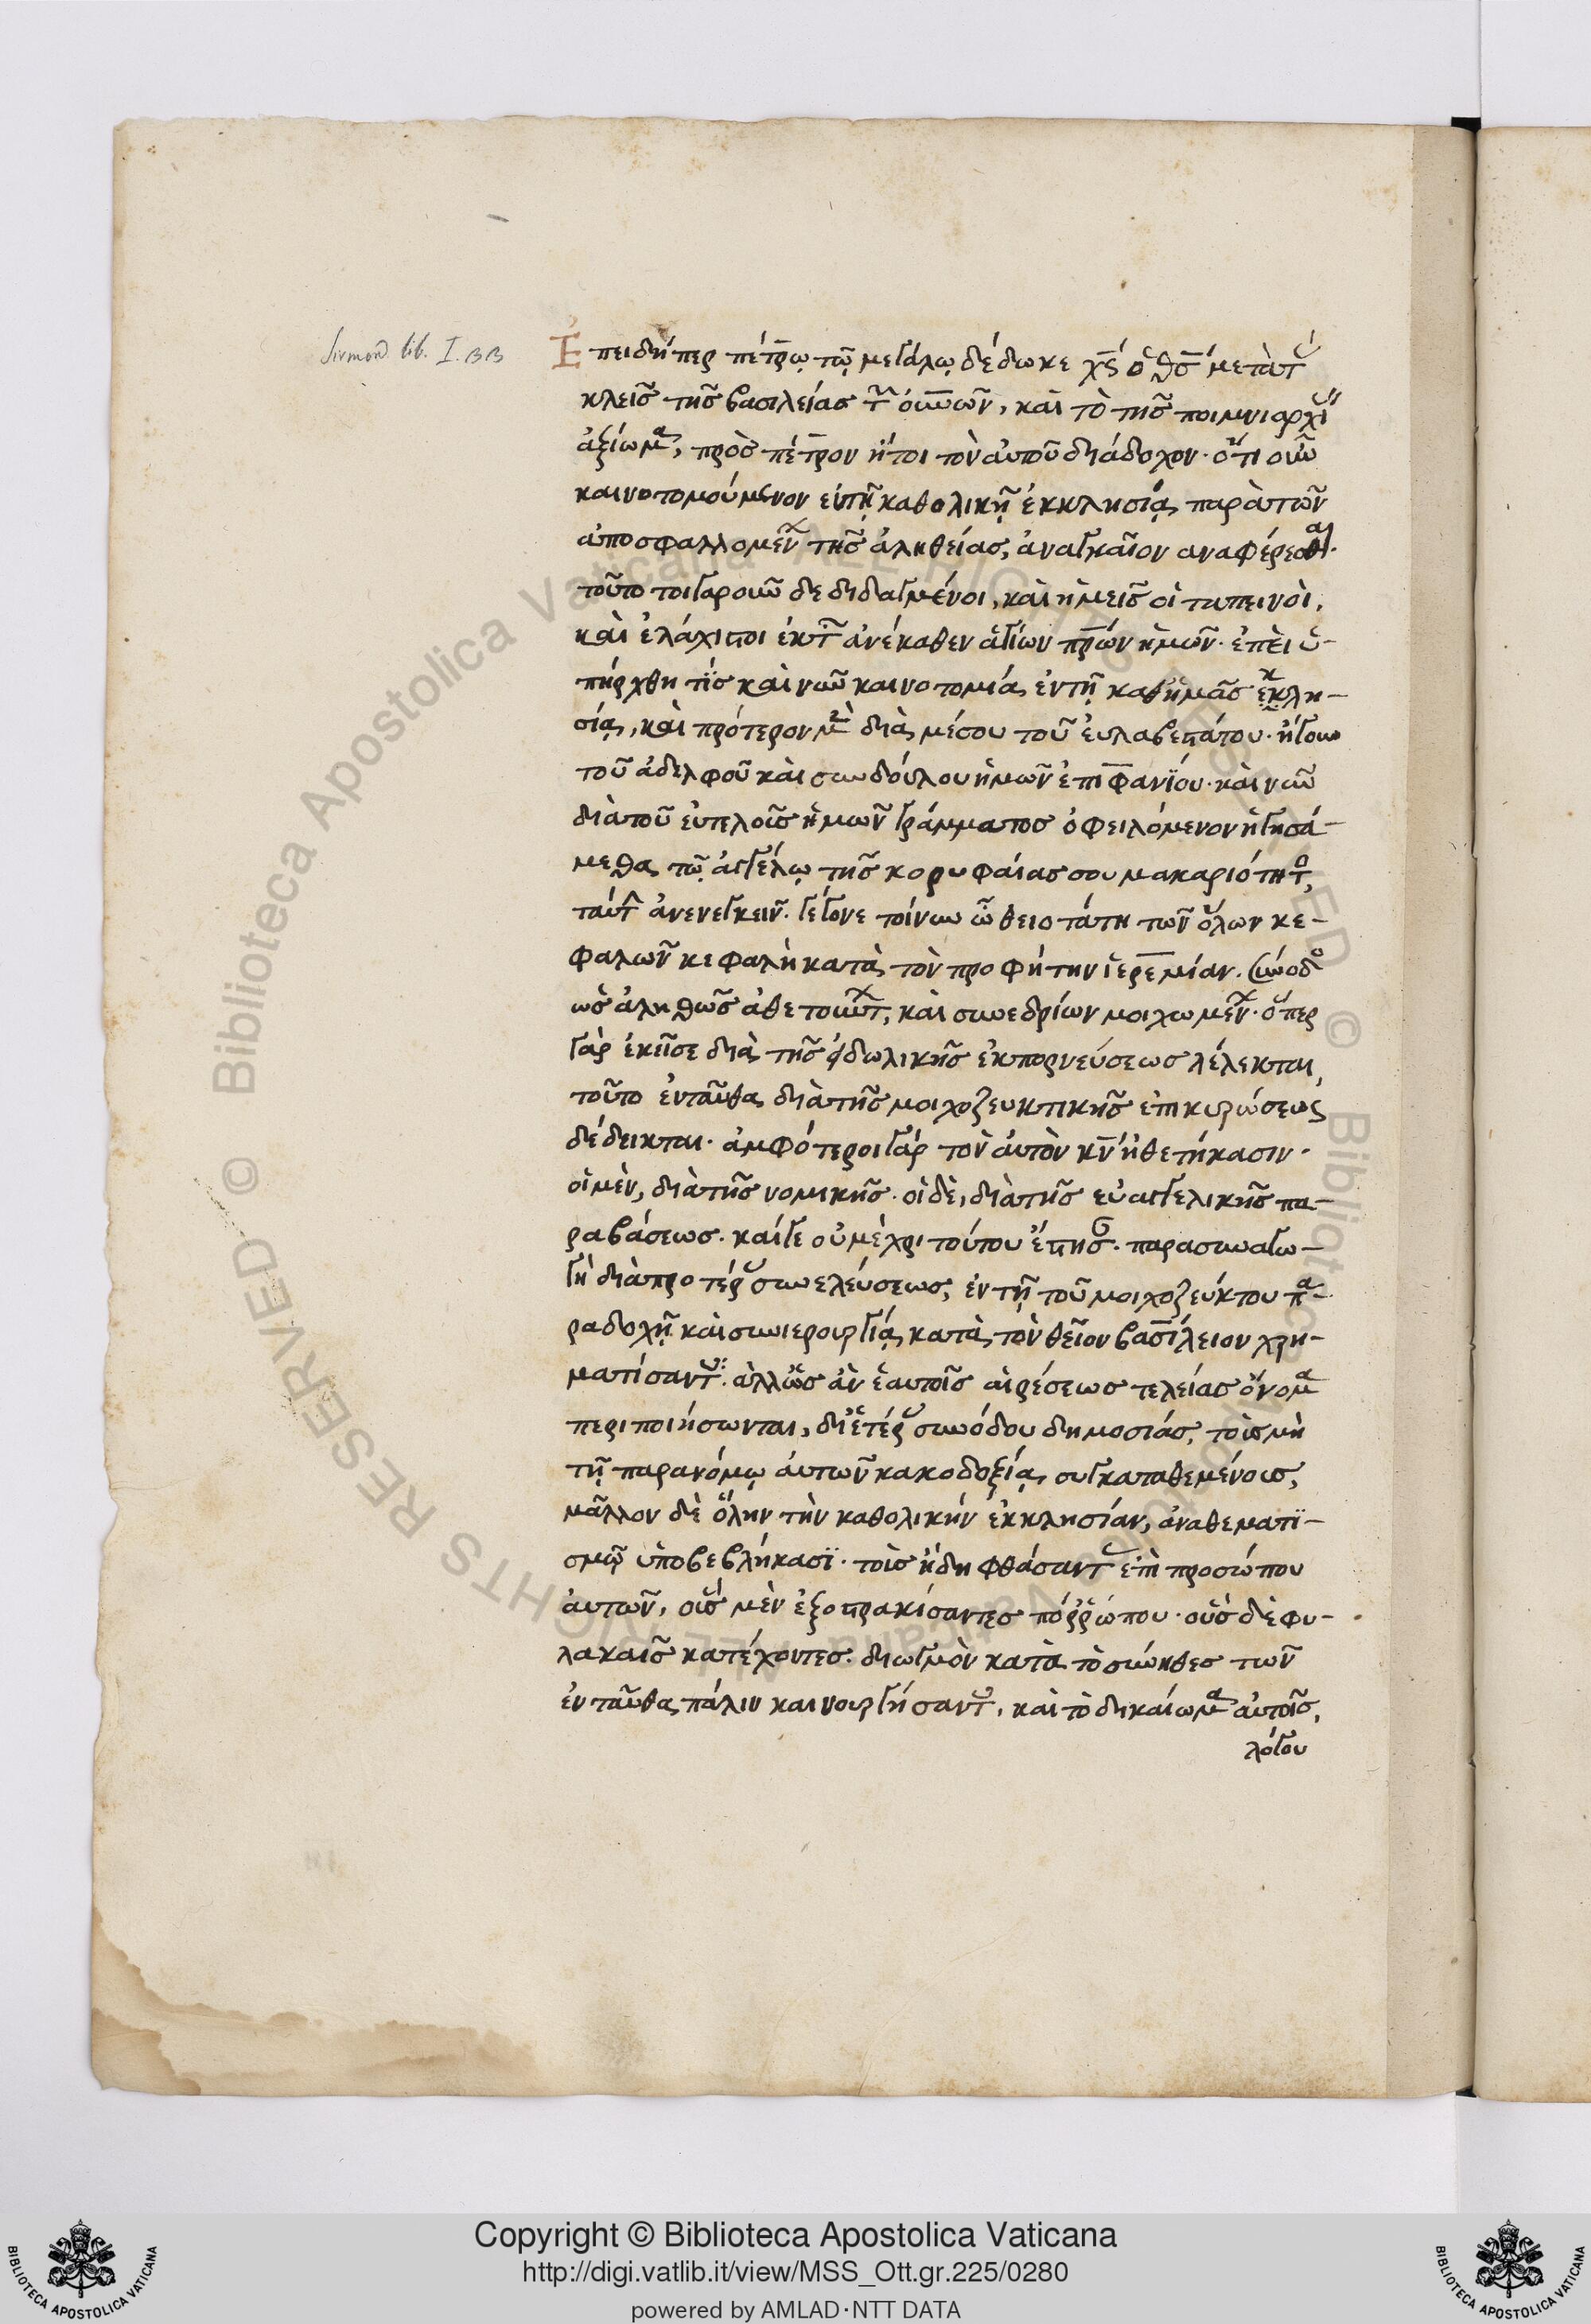 Sirmond. lib. I. 33
Ἐπειδήπερ πέτρῳ τῷ μεγάλῳ δέδωκε χς ὁ θς μετὰ τ
κλεῖς τῆς βασιλείας τ οὐνῶν, καὶ τὸ τῆς ποιμνιαρχί
ἀξίωμα, πρὸς πέτρον ἤτοι τὸν αὐτοῦ διάδοχον· ὅτι οὖν
καινοτομούμενον ἐν τῇ καθολικῇ ἐκκλησίᾳ παρὰ τῶν
ἀποσφαλλομέν τῆς ἀληθείας, ἀναγκαῖον ἀναφέρεσθαι·
τοῦτο τοιγαροῦν δεδιδαγμένοι, καὶ ἡμεῖς οἱ ταπεινοὶ,
καὶ ἐλάχιστοι ἐκ τ ἀνέκαθεν ἁγίων πρων ἡμῶν· ἐπεὶ ὑ-
πήρχθη τίς καὶ νῦν καινοτομία ἐν τῇ καθ' ἡμᾶς ἐκκλη-
σίᾳ, καὶ πρότερον μὲν διὰ μέσου τοῦ εὐλαβεστάτου· ἤγουν
τοῦ ἀδελφοῦ καὶ συνδούλου ἡμῶν ἐπιφανίου· καὶ νῦν
διὰ τοῦ εὐτελοῦς ἡμῶν γράμματος ὀφειλόμενον ἡγησά-
μεθα τῷ ἀγγέλῳ τῆς κορυφαίας σου μακαριότητο,
ταῦτ ἀνενεγκεῖν. γέγονε τοίνυν ὦ θειοτάτη τῶν ὅλων κε-
φαλῶν κεφαλὴ κατὰ τὸν προφήτην ἱερεμίαν. σύνοδο
ὡς ἀληθῶς ἀθετούντ, καὶ συνεδρίων μοιχωμέν· ὅπερ
γὰρ ἐκεῖσε διὰ τῆς εἰδωλικῆς ἐκπορνεύσεως λέλεκται,
τοῦτο ἐνταῦθα διὰ τῆς μοιχοζευκτικῆς ἐπικυρώσεως
δέδεικται· ἀμφότεροι γὰρ τὸν αὐτὸν κν ἠθετήκασιν·
οἱ μὲν, διὰ τῆς νομικῆς· οἱ δὲ, διὰ τῆς εὐαγγελικῆς πα-
ραβάσεως. καίγε οὐ μέχρι τούτου ἔστησαν· παρασυναγω-
γὴ διὰ προτέρ συνελεύσεως, ἐν τῇ τοῦ μοιχοζεύκτου πα-
ραδοχῇ καὶ συνιερουργίᾳ κατὰ τὸν θεῖον βασίλειον χρη-
ματίσαντ· ἀλλ' ὡς ἂν ἑαυτοῖς αἱρέσεως τελείας ὄνομα
περιποιήσωνται, δι' ἑτέρ συνόδου δημοσίας, τοὺς μὴ
τῇ παρανόμῳ αὐτῶν κακοδοξίᾳ συγκαταθεμένους,
μᾶλλον δὲ ὅλην τὴν καθολικὴν ἐκκλησίαν, ἀναθεματϊ-
σμῷ ὑποβεβλήκασϊ· τοὺς ἤδη φθάσαντ ἐπὶ προσώπου
αὐτῶν, οὓς μὲν ἐξοστρακίσαντες πόρρω που· οὓς δὲ φυ-
λακαῖς κατέχοντες. διωγμὸν κατὰ τὸ σύνηθες τῶν
ἐνταῦθα πάλιν καινουργήσαντ, καὶ τὸ δικαίωμα αὐτοῖς,
λόγου
Copyright © Biblioteca Apostolica Vaticana
http://digi.vatlib.it/view/MSS_Ott.gr.225/0280
powered by AMLAD·NTT DATA